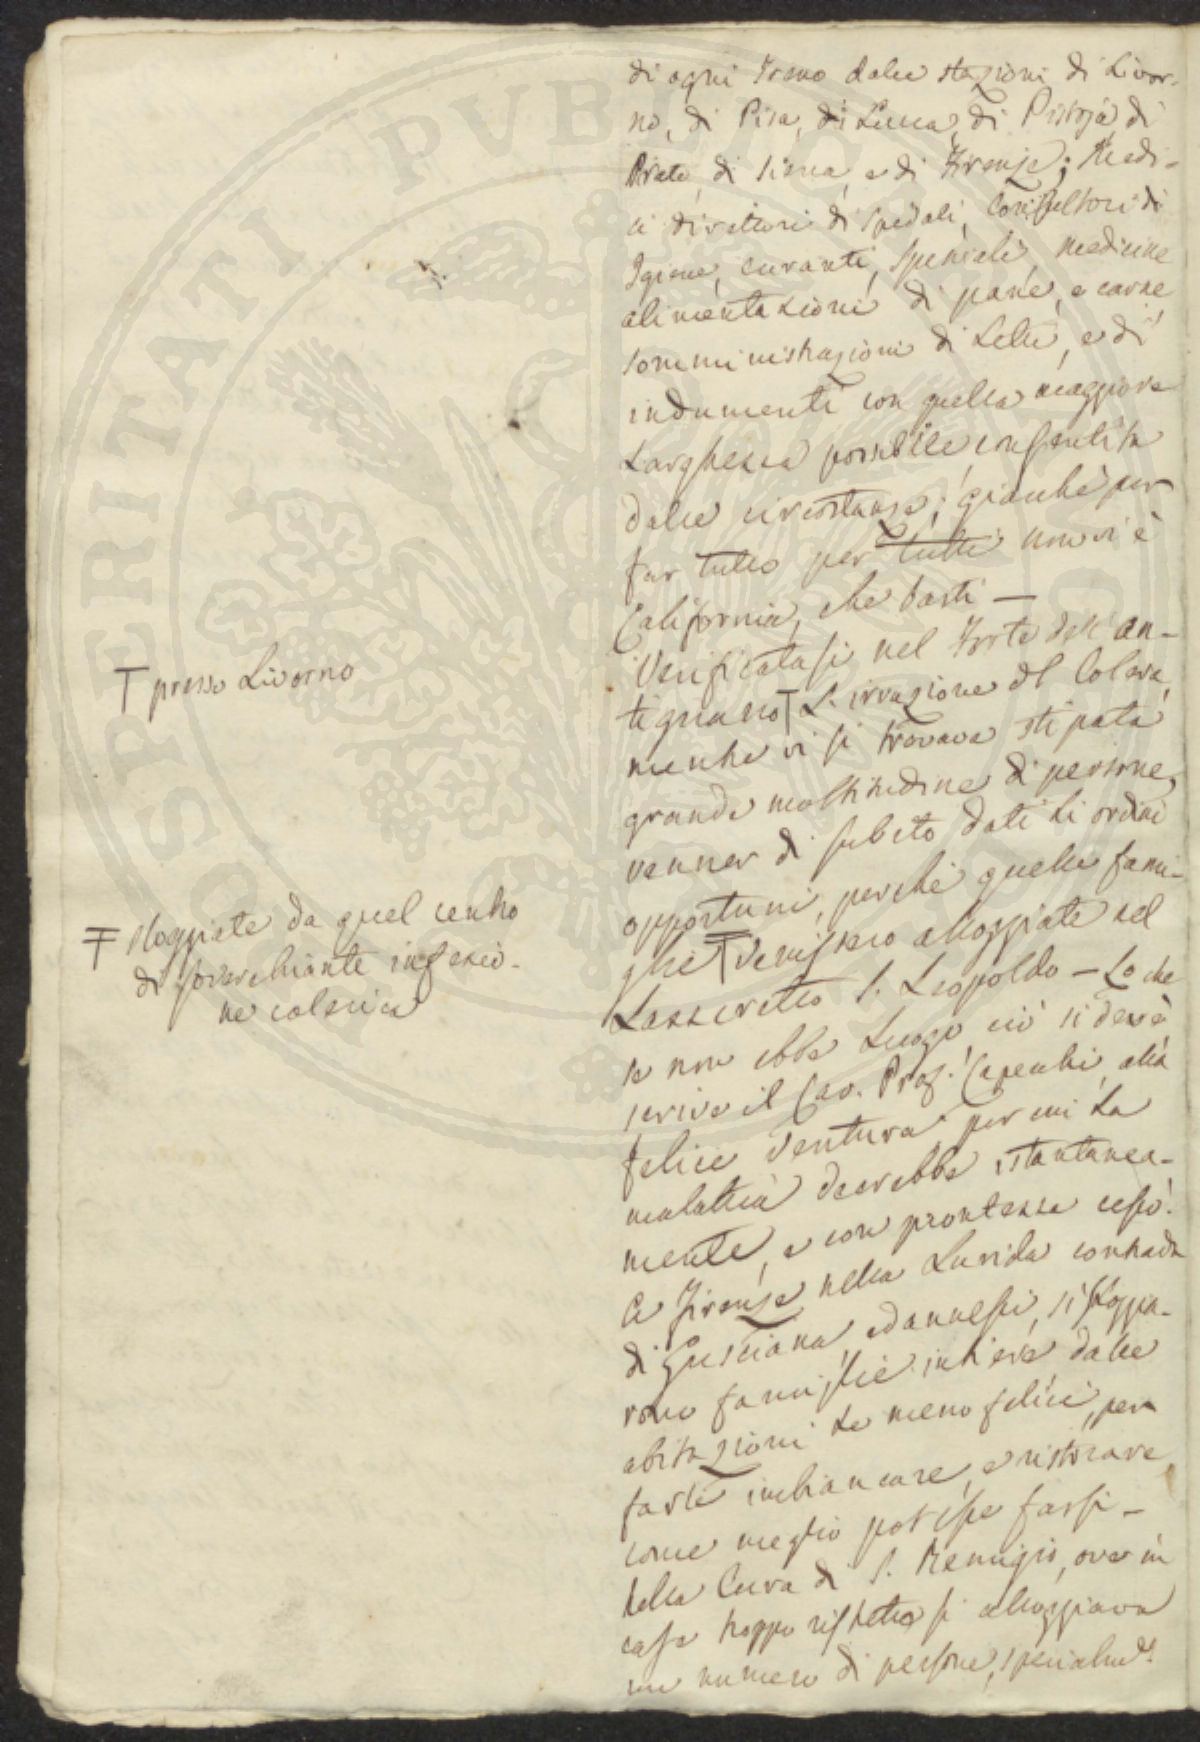 di ogni Treno dalle stazioni di Livor-
no, di Pisa, di Lucca, di Pistoja di
Prato, di Siena, e di Firenze; Medi-
ci direttori di Spedali, Consultori di
Igiene, curanti, Speziali, medicine
alimentazioni di pane, e carne
somministrazioni di Letti, e di
indumenti con quella maggiore
Larghezza possibile consentita
dalle circostanze; giacchè per
far tutto per tutti non vi è
California, che basti —
Verificatasi nel Forte dell'An-
tignano L'irruzione del Colera,
mentre vi si trovava stipata
grande moltitudine di persone,
venner di subito dati li ordini
opportuni, perchè quelle fami-
glie venissero alloggiate nel
Lazzeretto S. Leopoldo — Lo che
se non ebbe Luogo, ciò si deve,
scrive il Cav. Prof. Capecchi, alla
felice ventura per cui La
malattia decrebbe istantanea-
mente, e con prontezza cessò.
A Firenze nella Lurida contrada
di Gusciana, ed annessi, si sloggia-
rono famiglie intiere dalle
abitazioni Le meno felici, per
farle imbiancare, e ristorare,
come meglio potesse farsi —
Nella Cura di S. Remigio, ove in
case troppo ristrette si alloggiava
un numero di persone, specialm.e
presso Livorno
sloggiate da quel centro
di soverchiante infezio-
ne colerica
SPERITATI PVBLIC